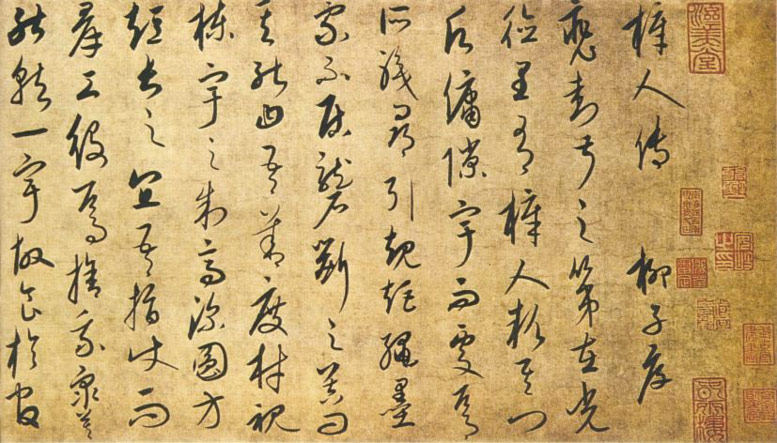 梓人傳 柳子厚
裴封叔之第在光
德里有梓人款其門
願傭隙宇而處焉
所職尋引規矩繩墨
家不居礱斲之器問
其能曰吾善度材視
棟宇之制高深圓方
短長之宜吾指使而
羣工役焉捨我衆莫
能就一宇故食於官